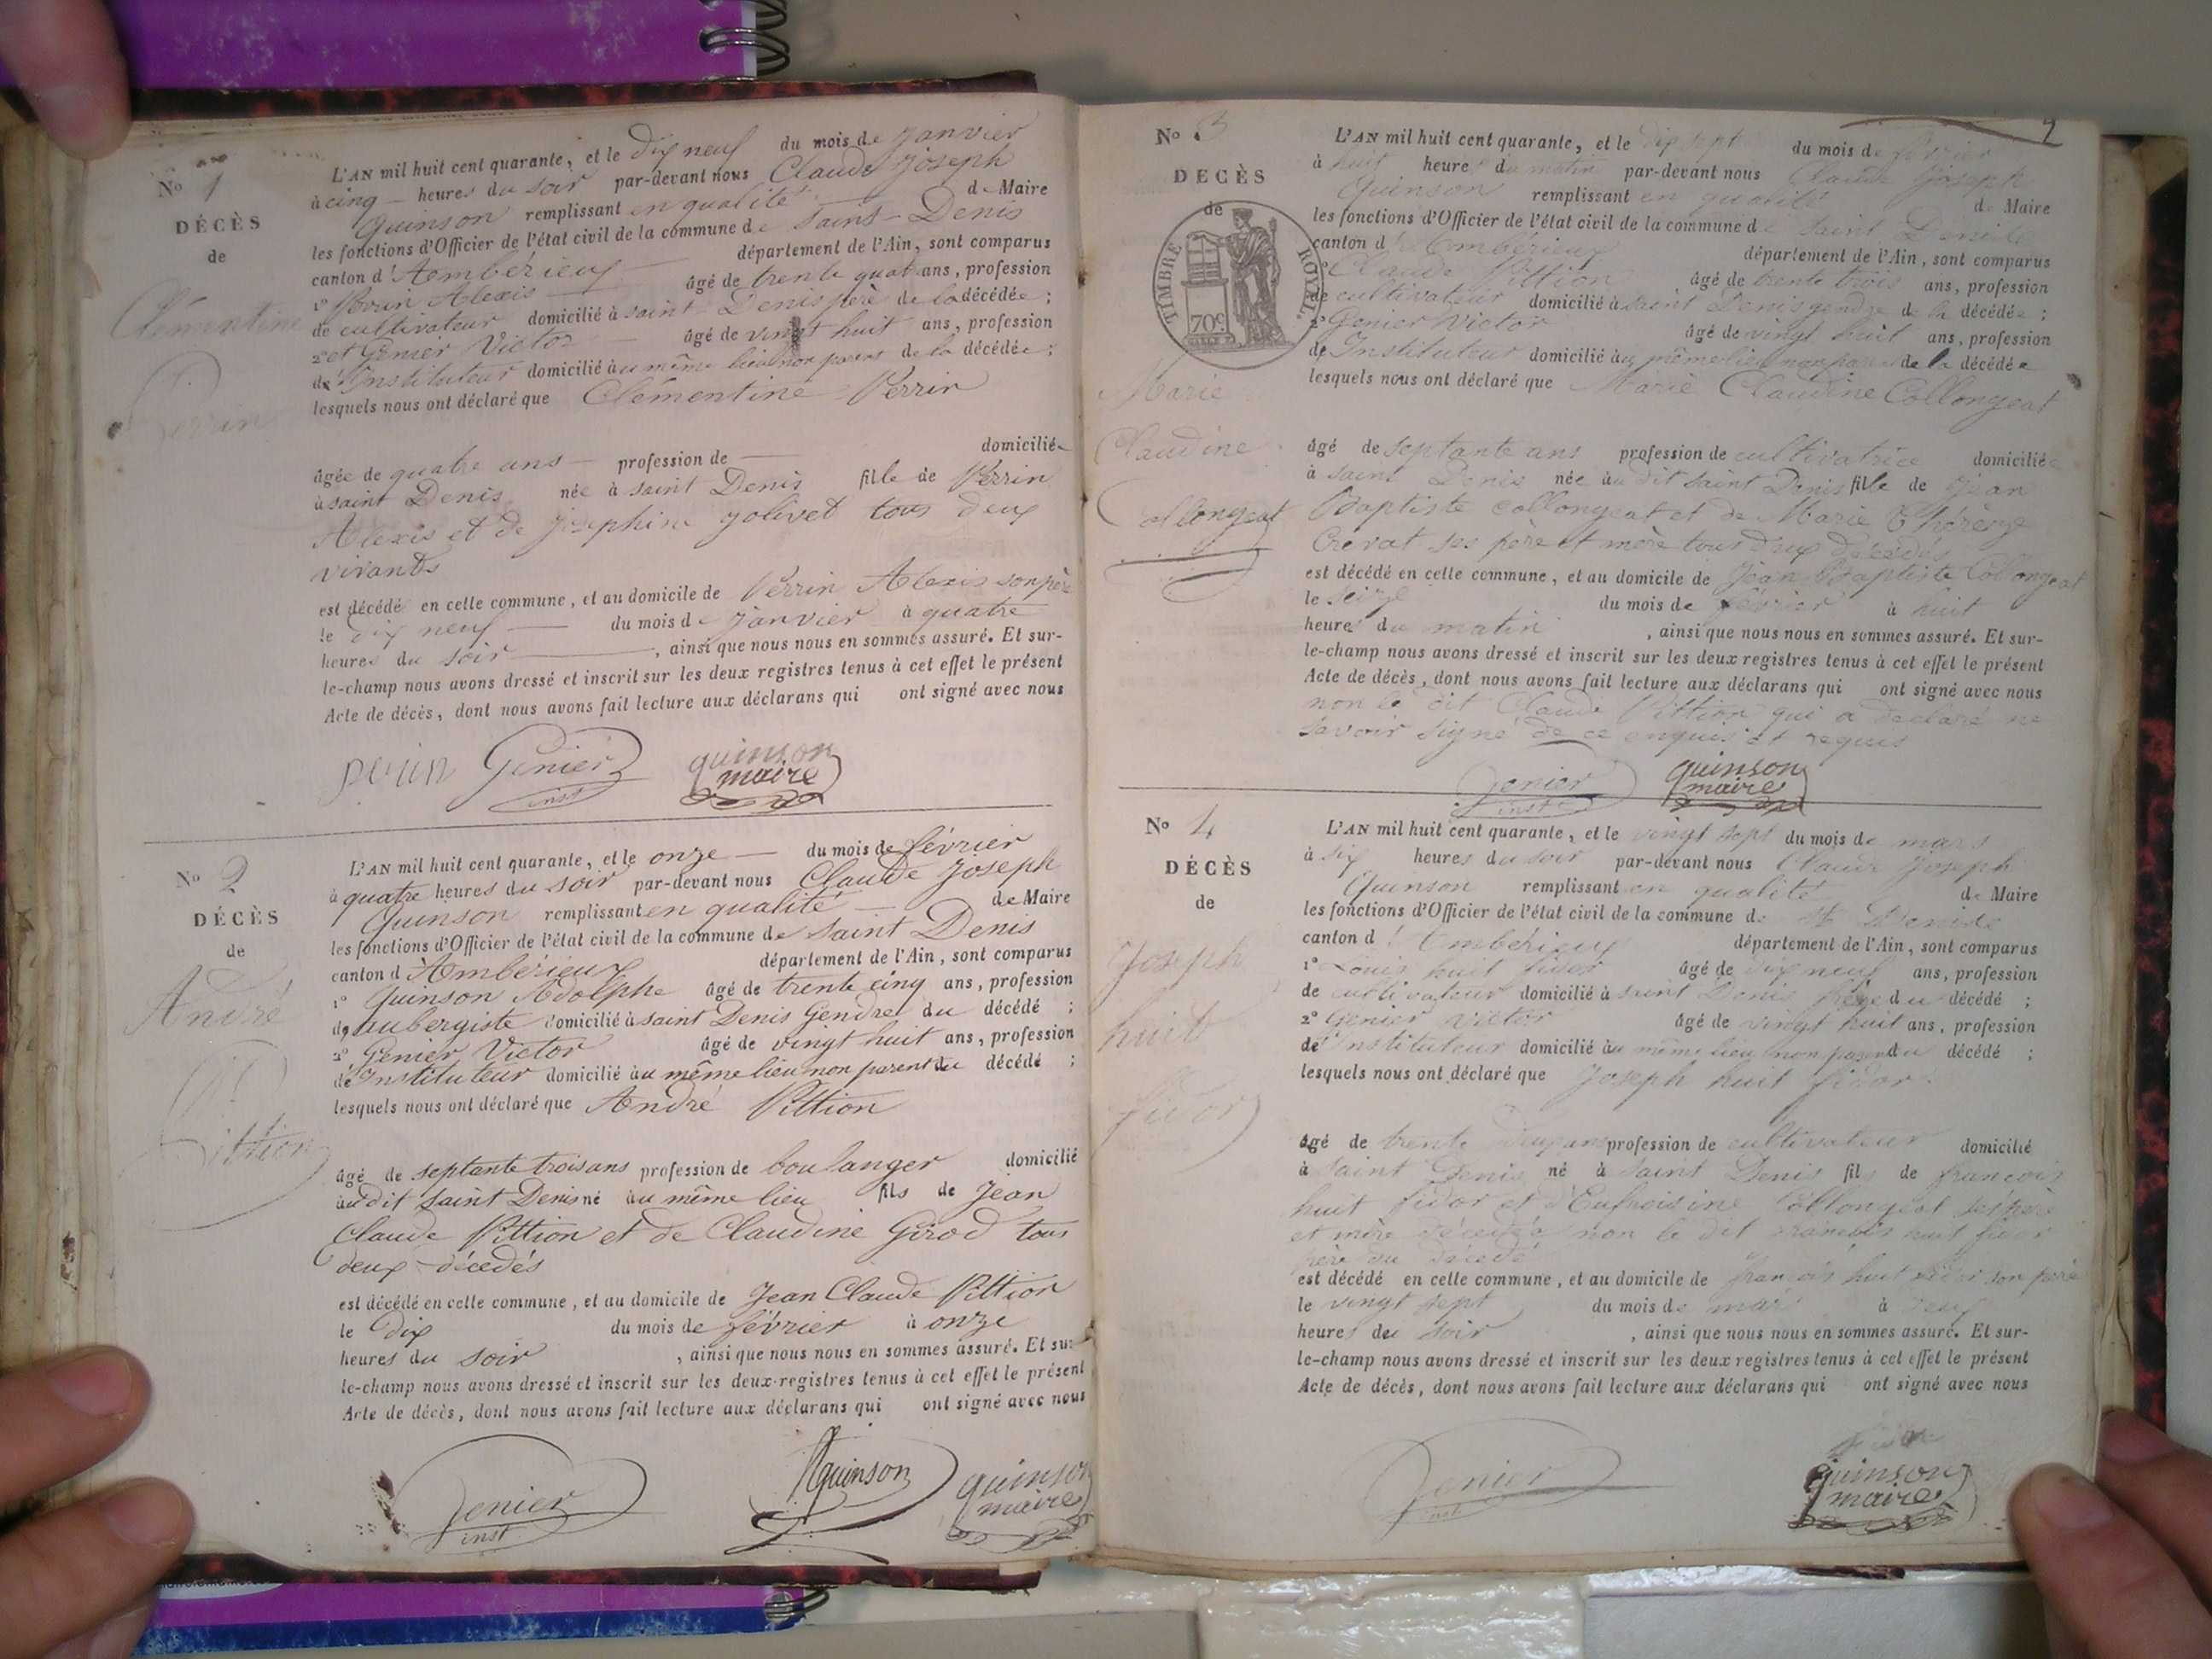 No 1
DÉCÈS
de
Clémentine
Perrin
L'AN mil huit cent quarante, et le dix neuf du mois de janvier
à cinq heures du soir par-devant nous Claude Joseph
Quinson remplissant en qualité de Maire
les fonctions d'Officier de l'état civil de la commune de Saint Denis
canton d'Ambérieux département de l'Ain, sont comparus
1° Perrin Alexis âgé de trente quat ans, profession
de cultivateur domicilié à saint Denis père de la décédée ;
2° et Genier Victor âgé de vingt huit ans, profession
de Instituteur domicilié au même lieu non parent de la décédée ;
lesquels nous ont déclaré que Clémentine Perrin
âgée de quatre ans profession de domiciliée
à saint Denis née à saint Denis fille de Perrin
Alexis et de Josephine Jolivet tous deux
vivants
est décédé en cette commune, et au domicile de Perrin Alexis son père
le dix neuf du mois de janvier à quatre
heures du soir , ainsi que nous nous en sommes assuré. Et sur-
le-champ nous avons dressé et inscrit sur les deux registres tenus à cet effet le présent
Acte de décès, dont nous avons fait lecture aux déclarans qui ont signé avec nous
perrin Genier quinson
inst maire
No 2
DÉCÈS
de
André
Pittion
L'AN mil huit cent quarante, et le onze du mois de février
à quatre heures du soir par-devant nous Claude Joseph
Quinson remplissant en qualité de Maire
les fonctions d'Officier de l'état civil de la commune de Saint Denis
canton d'Ambérieux département de l'Ain, sont comparus
1° Quinson Adolphe âgé de trente cinq ans, profession
de aubergiste domicilié à saint Denis Gendre du décédé ;
2° Genier Victor âgé de vingt huit ans, profession
de Instituteur domicilié au même lieu non parent du décédé ;
lesquels nous ont déclaré que André Pittion
âgé de septante trois ans profession de boulanger domicilié
au dit saint Denis né au même lieu fils de Jean
Claude Pittion et de Claudine Girod tous
deux décédés
est décédé en cette commune, et au domicile de Jean Claude Pittion
le dix du mois de février à onze
heures du soir , ainsi que nous nous en sommes assuré. Et sur-
le-champ nous avons dressé et inscrit sur les deux registres tenus à cet effet le présent
Acte de décès, dont nous avons fait lecture aux déclarans qui ont signé avec nous
Genier quinson quinson
inst maire
2
No 3
DECÈS
de
TIMBRE ROYAL
70c
Marie
Claudine
Collongeat
L'AN mil huit cent quarante, et le dix sept du mois de février
à huit heures du matin par-devant nous Claude Joseph
Quinson remplissant en qualité de Maire
les fonctions d'Officier de l'état civil de la commune de Saint Denis
canton d'Ambérieux département de l'Ain, sont comparus
1° Claude Pittion âgé de trente trois ans, profession
de cultivateur domicilié à saint Denis gendre de la décédée ;
2° Genier Victor âgé de vingt huit ans, profession
de Instituteur domicilié au même lieu non parent de la décédée
lesquels nous ont déclaré que Marie Claudine Collongeat
âgé de septante ans profession de cultivatrice domiciliée
à saint Denis née au dit saint Denis fille de Jean
Baptiste collongeat et de Marie Thérèze
Crevat ses père et mère tous deux décédés
est décédé en cette commune, et au domicile de Jean Baptiste Collongeat
le seize du mois de février à huit
heures du matin , ainsi que nous nous en sommes assuré. Et sur-
le-champ nous avons dressé et inscrit sur les deux registres tenus à cet effet le présent
Acte de décès, dont nous avons fait lecture aux déclarans qui ont signé avec nous
non le dit Claude Pittion qui a déclaré ne
savoir signé de ce enquis et requis
Genier quinson
inst maire
No 4
DÉCÈS
de
Joseph
huit
fidor
L'AN mil huit cent quarante, et le vingt sept du mois de mars
à six heures du soir par-devant nous Claude Joseph
Quinson remplissant en qualité de Maire
les fonctions d'Officier de l'état civil de la commune de St Denis
canton d'Ambérieux département de l'Ain, sont comparus
1° Louis huit fidor âgé de dix neuf ans, profession
de cultivateur domicilié à saint Denis frère du décédé ;
2° Genier Victor âgé de vingt huit ans, profession
de Instituteur domicilié au même lieu non parent du décédé ;
lesquels nous ont déclaré que Joseph huit fidor
âgé de trente deux ans profession de cultivateur domicilié
à saint Denis né à saint Denis fils de francois
huit fidor et d'Eufroisine Collongeat ses père
et mère décédés non le dit francois huit fidor
père du décédé
est décédé en cette commune, et au domicile de francois huit fidor son père
le vingt sept du mois de mars à
heures du soir , ainsi que nous nous en sommes assuré. Et sur-
le-champ nous avons dressé et inscrit sur les deux registres tenus à cet effet le présent
Acte de décès, dont nous avons fait lecture aux déclarans qui ont signé avec nous
Genier quinson
inst maire